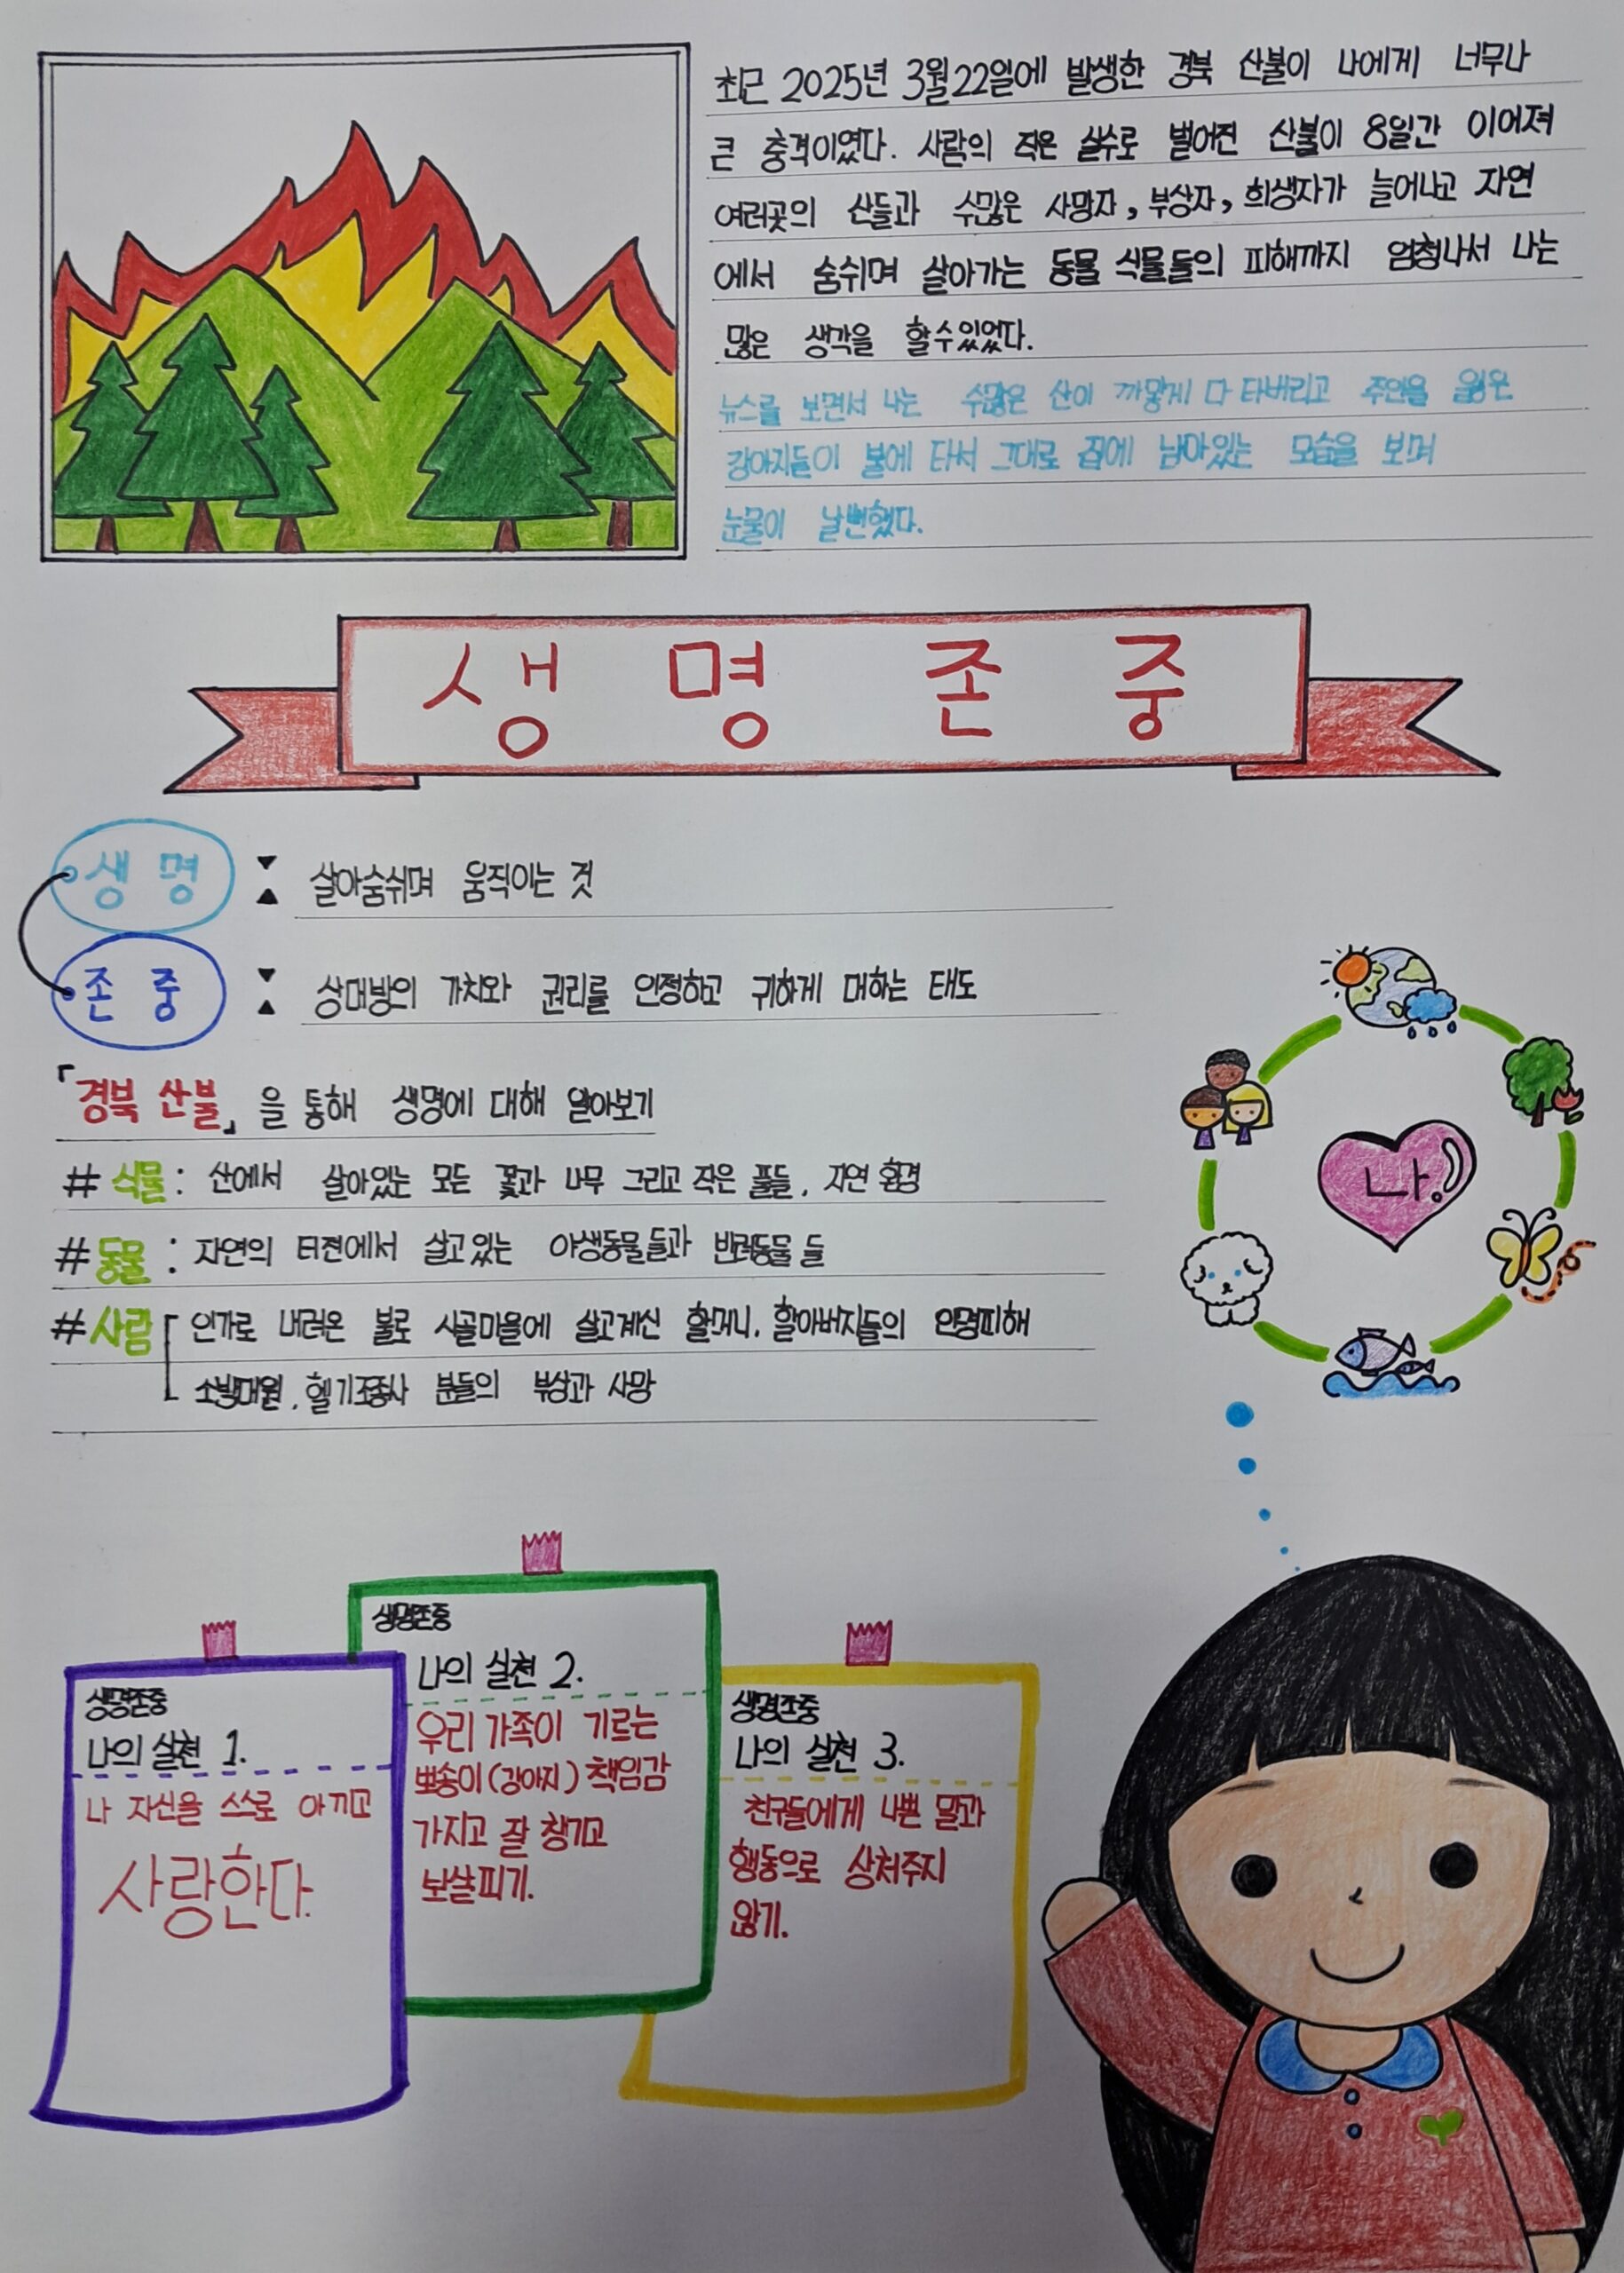 최근 2025년 3월22일에 발생한 경북 산불이 나에게 너무나
큰 충격이였다. 사람의 작은 실수로 벌어진 산불이 8일간 이어져
여러곳의 산들과 수많은 사망자, 부상자, 희생자가 늘어나고 자연
에서 숨쉬며 살아가는 동물 식물들의 피해까지 엄청나서 나는
많은 생각을 할수있었다.
뉴스를 보면서 나는 수많은 산이 까맣게 다 타버리고 주인을 잃은
강아지들이 불에 타서 그대로 집에 남아있는 모습을 보며
눈물이 날뻔했다.
생 명 존 중
생 명 살아숨쉬며 움직이는 것
존 중 상대방의 가치와 권리를 인정하고 귀하게 대하는 태도
「경북 산불」을 통해 생명에 대해 알아보기
# 식물 : 산에서 살아있는 모든 꽃과 나무 그리고 작은 풀들, 자연 환경
# 동물 : 자연의 터전에서 살고있는 야생동물들과 반려동물들
# 사람 인가로 내려온 불로 시골마을에 살고계신 할머니, 할아버지들의 인명피해
소방대원, 헬기조종사 분들의 부상과 사망
나.
생명존중
나의 실천 1.
나 자신을 스스로 아끼고
사랑한다.
생명존중
나의 실천 2.
우리 가족이 기르는
뽀송이(강아지) 책임감
가지고 잘 챙기고
보살피기.
생명존중
나의 실천 3.
친구들에게 나쁜 말과
행동으로 상처주지
않기.